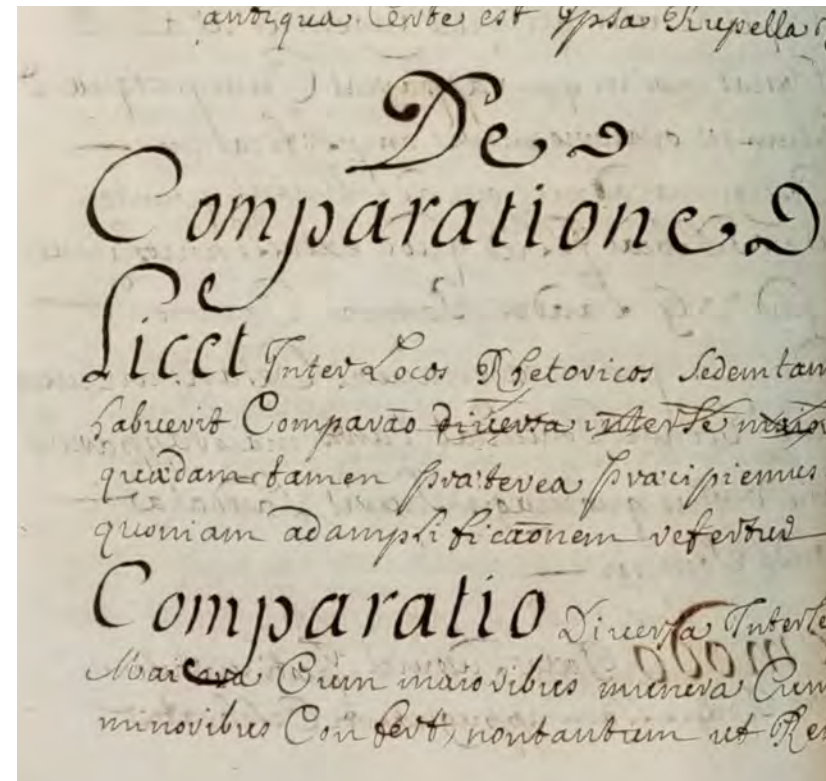 antiqua Certe est Ypsa
De
Comparatione
Licet Inter Locos Rhetoricos Sedem tam
habuerit Comparāo diversa inter se maior
quædam tamen præterea præcipiemus
quoniam ad amplificāonem refertur
Comparatio Diversa Inter se
Maiora Cum maioribus munera Cum
minoribus Confert, non tantum ut Re